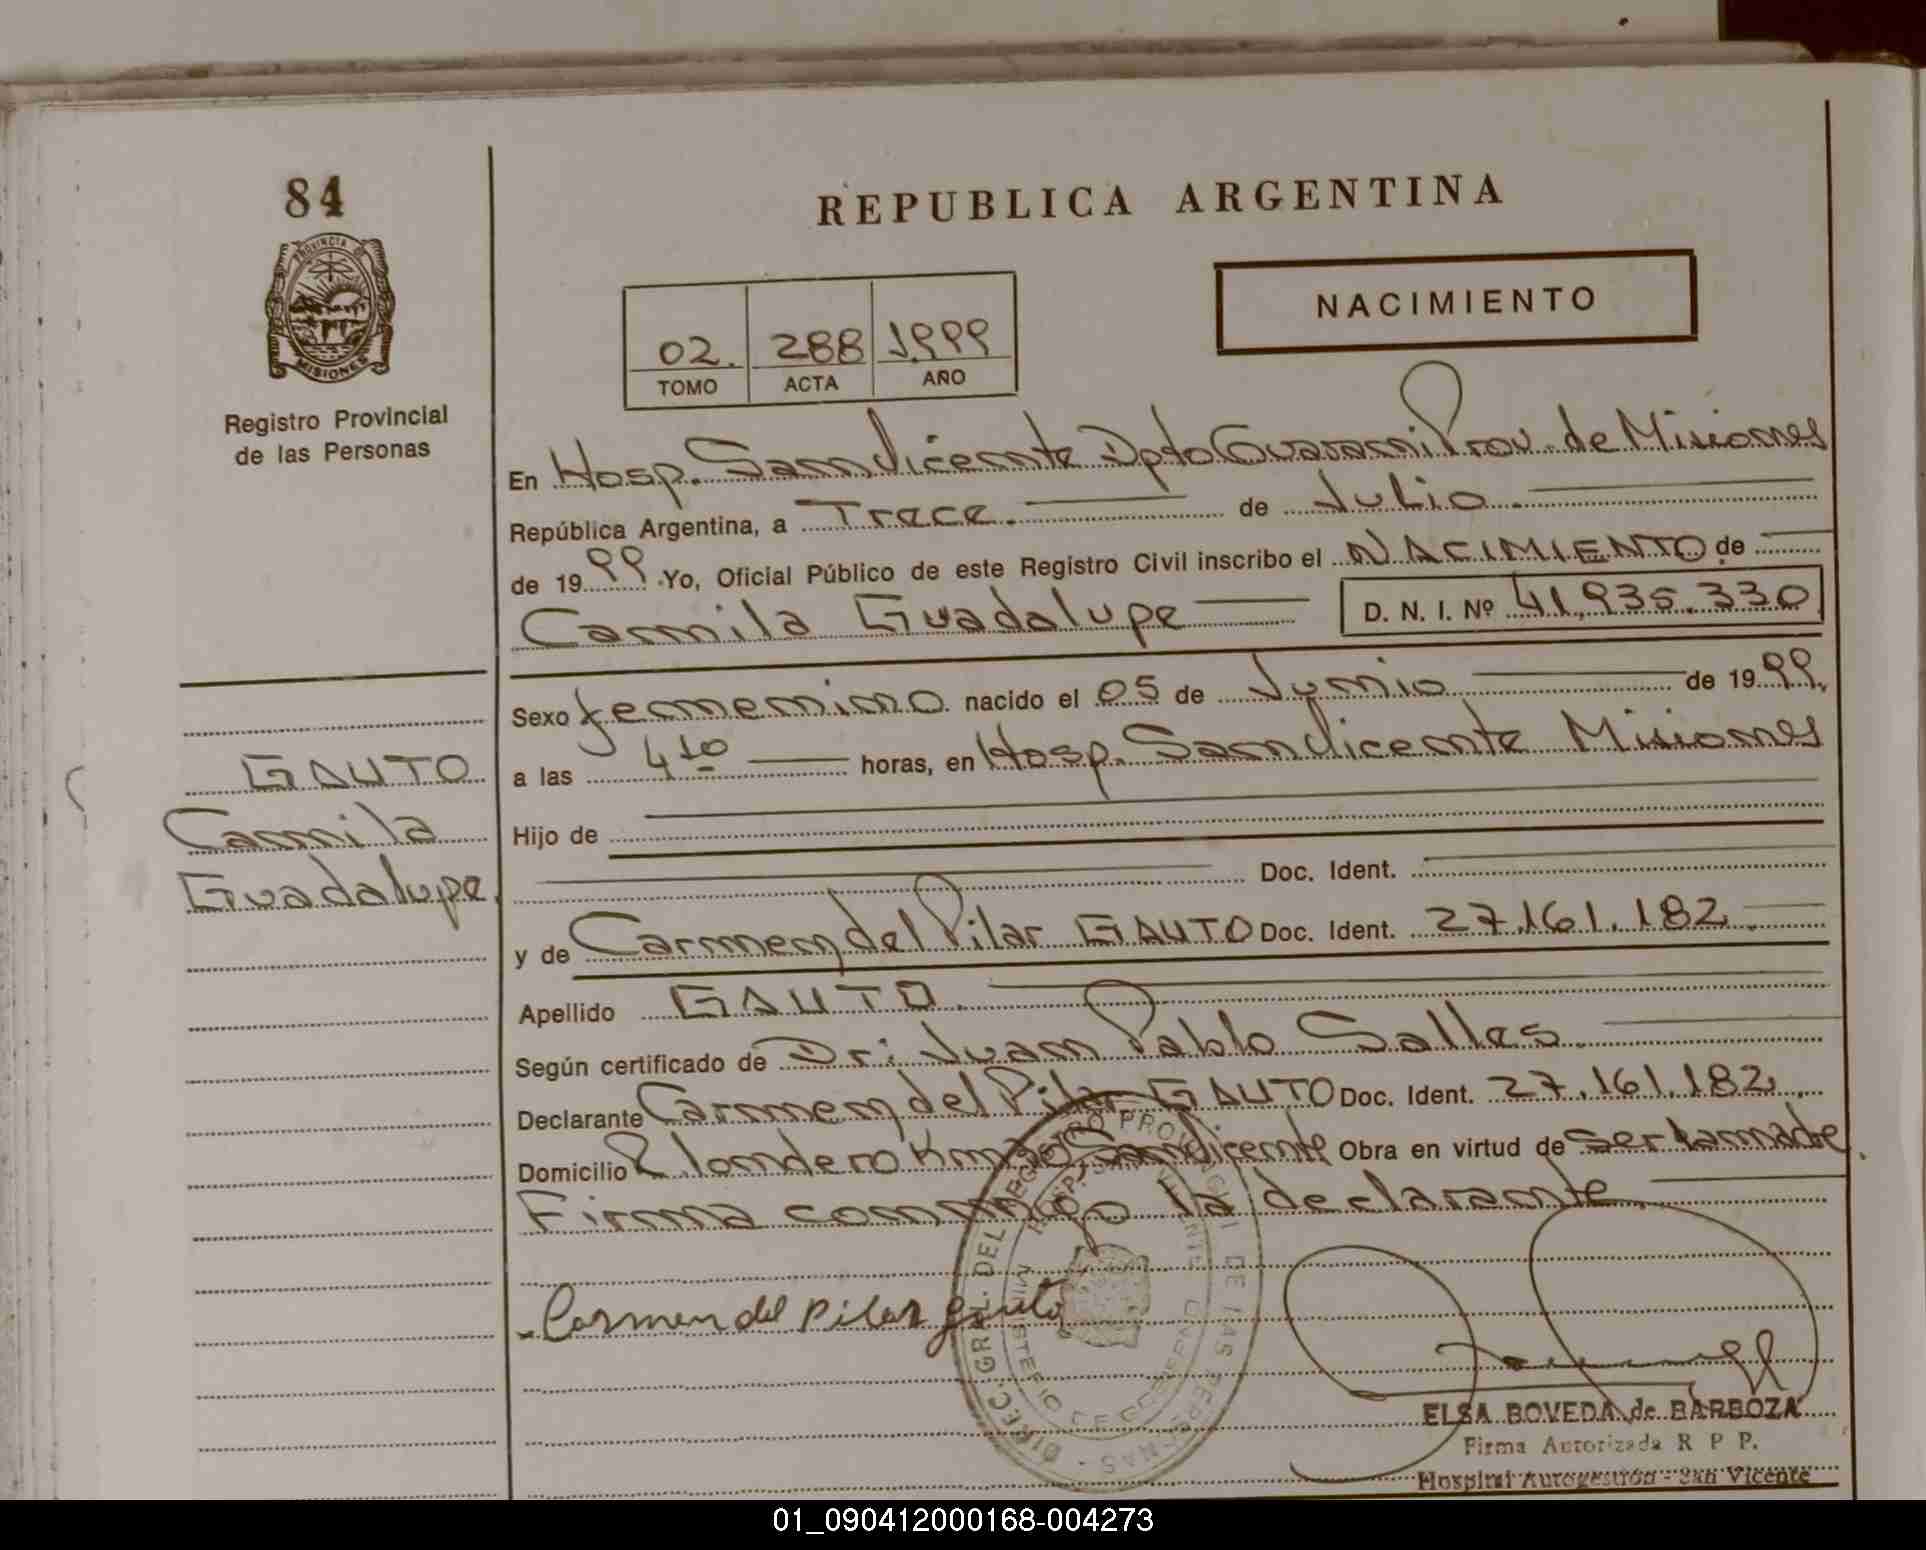 84
PROVINCIA DE
MISIONES
Registro Provincial
de las Personas
REPUBLICA ARGENTINA
02. 288 1999
TOMO ACTA AÑO
NACIMIENTO
En Hosp. San Vicente Dpto Guarani Prov. de Misiones
República Argentina, a Trece. de Julio.
de 1999. Yo, Oficial Público de este Registro Civil inscribo el NACIMIENTO de
Camila Guadalupe D. N. I. Nº 41.935.330
Sexo femenino nacido el 05 de Junio de 1999.
a las 4 10 horas, en Hosp. San Vicente Misiones
Hijo de
Doc. Ident.
y de Carmen del Pilar GAUTO Doc. Ident. 27.161.182.
Apellido GAUTO.
Según certificado de Dr: Juan Pablo Salles.
Declarante Carmen del Pilar GAUTO Doc. Ident. 27.161.182.
Domicilio San Vicente Obra en virtud de ser la madre.
Firma conmigo la declarante.
GAUTO
Camila
Guadalupe.
Carmen del Pilar Gauto
DIREC. GRAL. DEL REGISTRO PROVINCIAL DE LAS PERSONAS
MINISTERIO DE GOBIERNO
ELSA BOVEDA de BARBOZA
Firma Autorizada R P P.
Hospital Autogestión - San Vicente
01_090412000168-004273